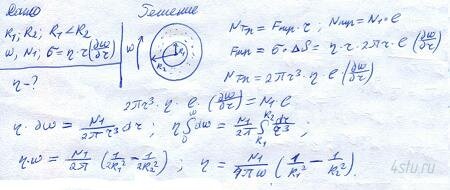 Дано
R₁; R₂; R₁ < R₂
ω, N₁; σ = η·r(∂ω/∂r)
η - ?
Решение
ω R₁ R₂
Nтр = Fтр · r ; Nтр = N₁ · ℓ
Fтр = σ · ΔS = η · r · 2πr · ℓ (∂ω/∂r)
Nтр = 2πr³ · η · ℓ (∂ω/∂r)
2πr³ · η · ℓ · (∂ω/∂r) = N₁ · ℓ
η · ∂ω = N₁/2π r³ dr ; η ∫₀^ω dω = N₁/2π ∫_R₁^R₂ dr/r³ ;
η·ω = N₁/2π (1/2R₁² - 1/2R₂²) ; η = N₁/4πω (1/R₁² - 1/R₂²).
4stu.ru